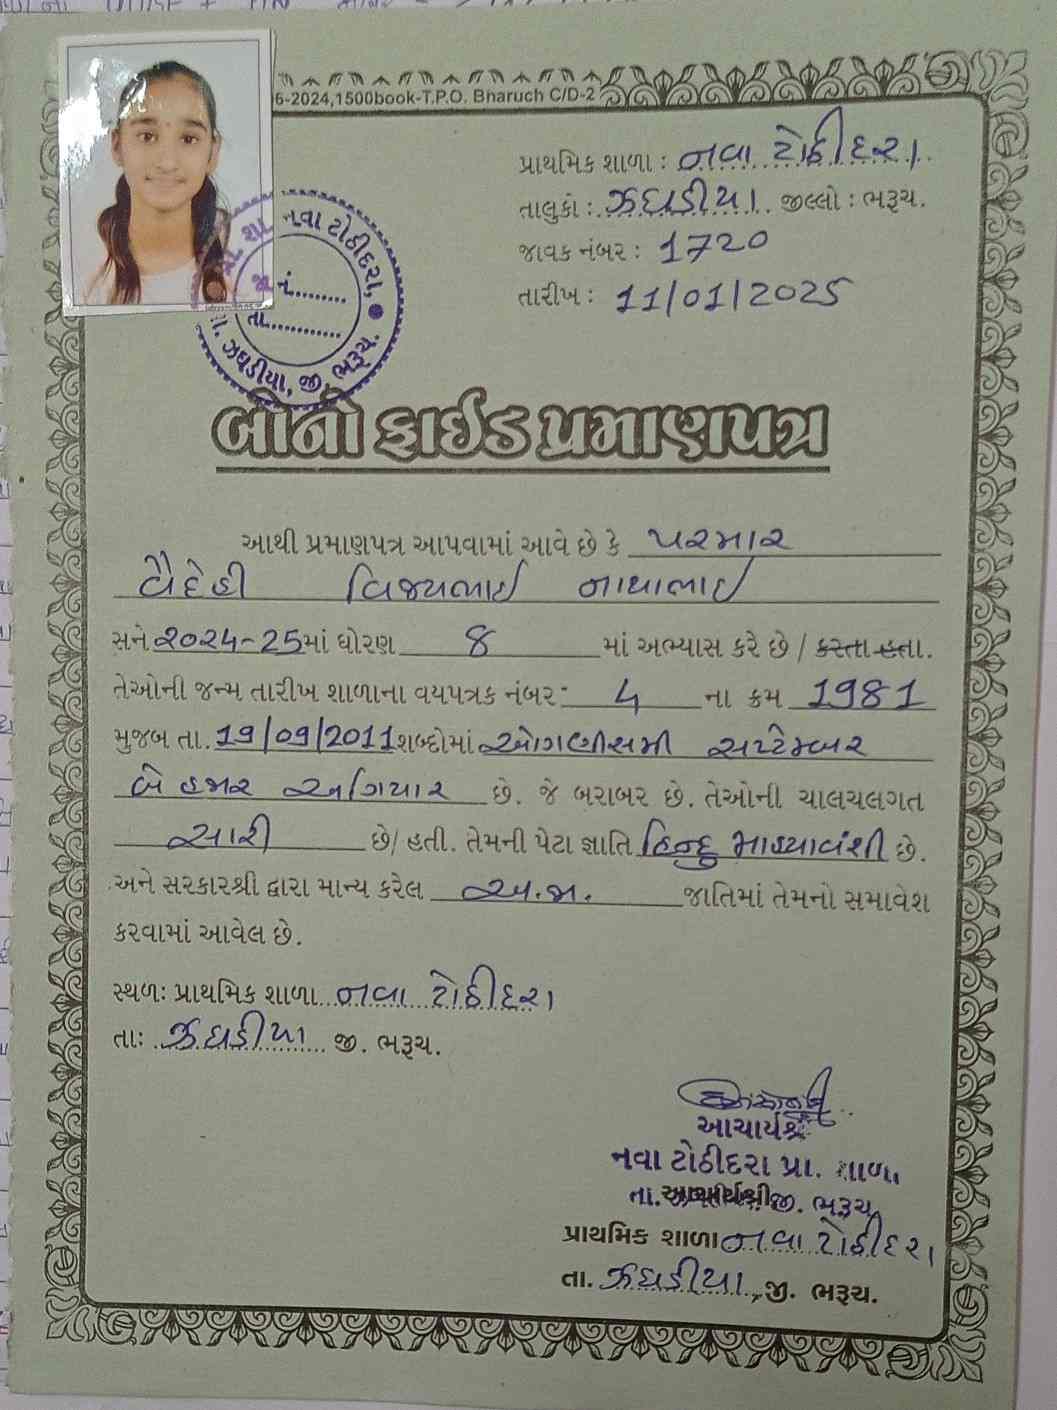 6-2024,1500book-T.P.O. Bharuch C/D-2
પ્રાથમિક શાળા : નવા ટોઠીદરા
તાલુકો : ઝઘડીયા જીલ્લો : ભરૂચ.
જાવક નંબર : 1720
તારીખ : 11/01/2025
શા. નવા ટોઠીદરા,
જા. નં.
તા.
તા. ઝઘડીયા, જી. ભરૂચ.
બોનોફાઈડ પ્રમાણપત્ર
આથી પ્રમાણપત્ર આપવામાં આવે છે કે પરમાર
વૈદેહી વિજયભાઈ નાથાભાઈ
સને ૨૦૨૪-25માં ધોરણ 8 માં અભ્યાસ કરે છે / કરતા હતા.
તેઓની જન્મ તારીખ શાળાના વયપત્રક નંબર:- 4 ના ક્રમ 1981
મુજબ તા. 19/09/2011 શબ્દોમાં ઓગણીસમી સપ્ટેમ્બર
બે હજાર અગિયાર છે. જે બરાબર છે. તેઓની ચાલચલગત
સારી છે/ હતી. તેમની પેટા જ્ઞાતિ હિન્દુ માહ્યાવંશી છે.
અને સરકારશ્રી દ્વારા માન્ય કરેલ અ.જા. જાતિમાં તેમનો સમાવેશ
કરવામાં આવેલ છે.
સ્થળ: પ્રાથમિક શાળા નવા ટોઠીદરા
તા: ઝઘડીયા જી. ભરૂચ.
આચાર્યશ્રી
નવા ટોઠીદરા પ્રા. શાળા
તા. આચાર્યશ્રી જી. ભરૂચ
પ્રાથમિક શાળા નવા ટોઠીદરા
તા. ઝઘડીયા, જી. ભરૂચ.